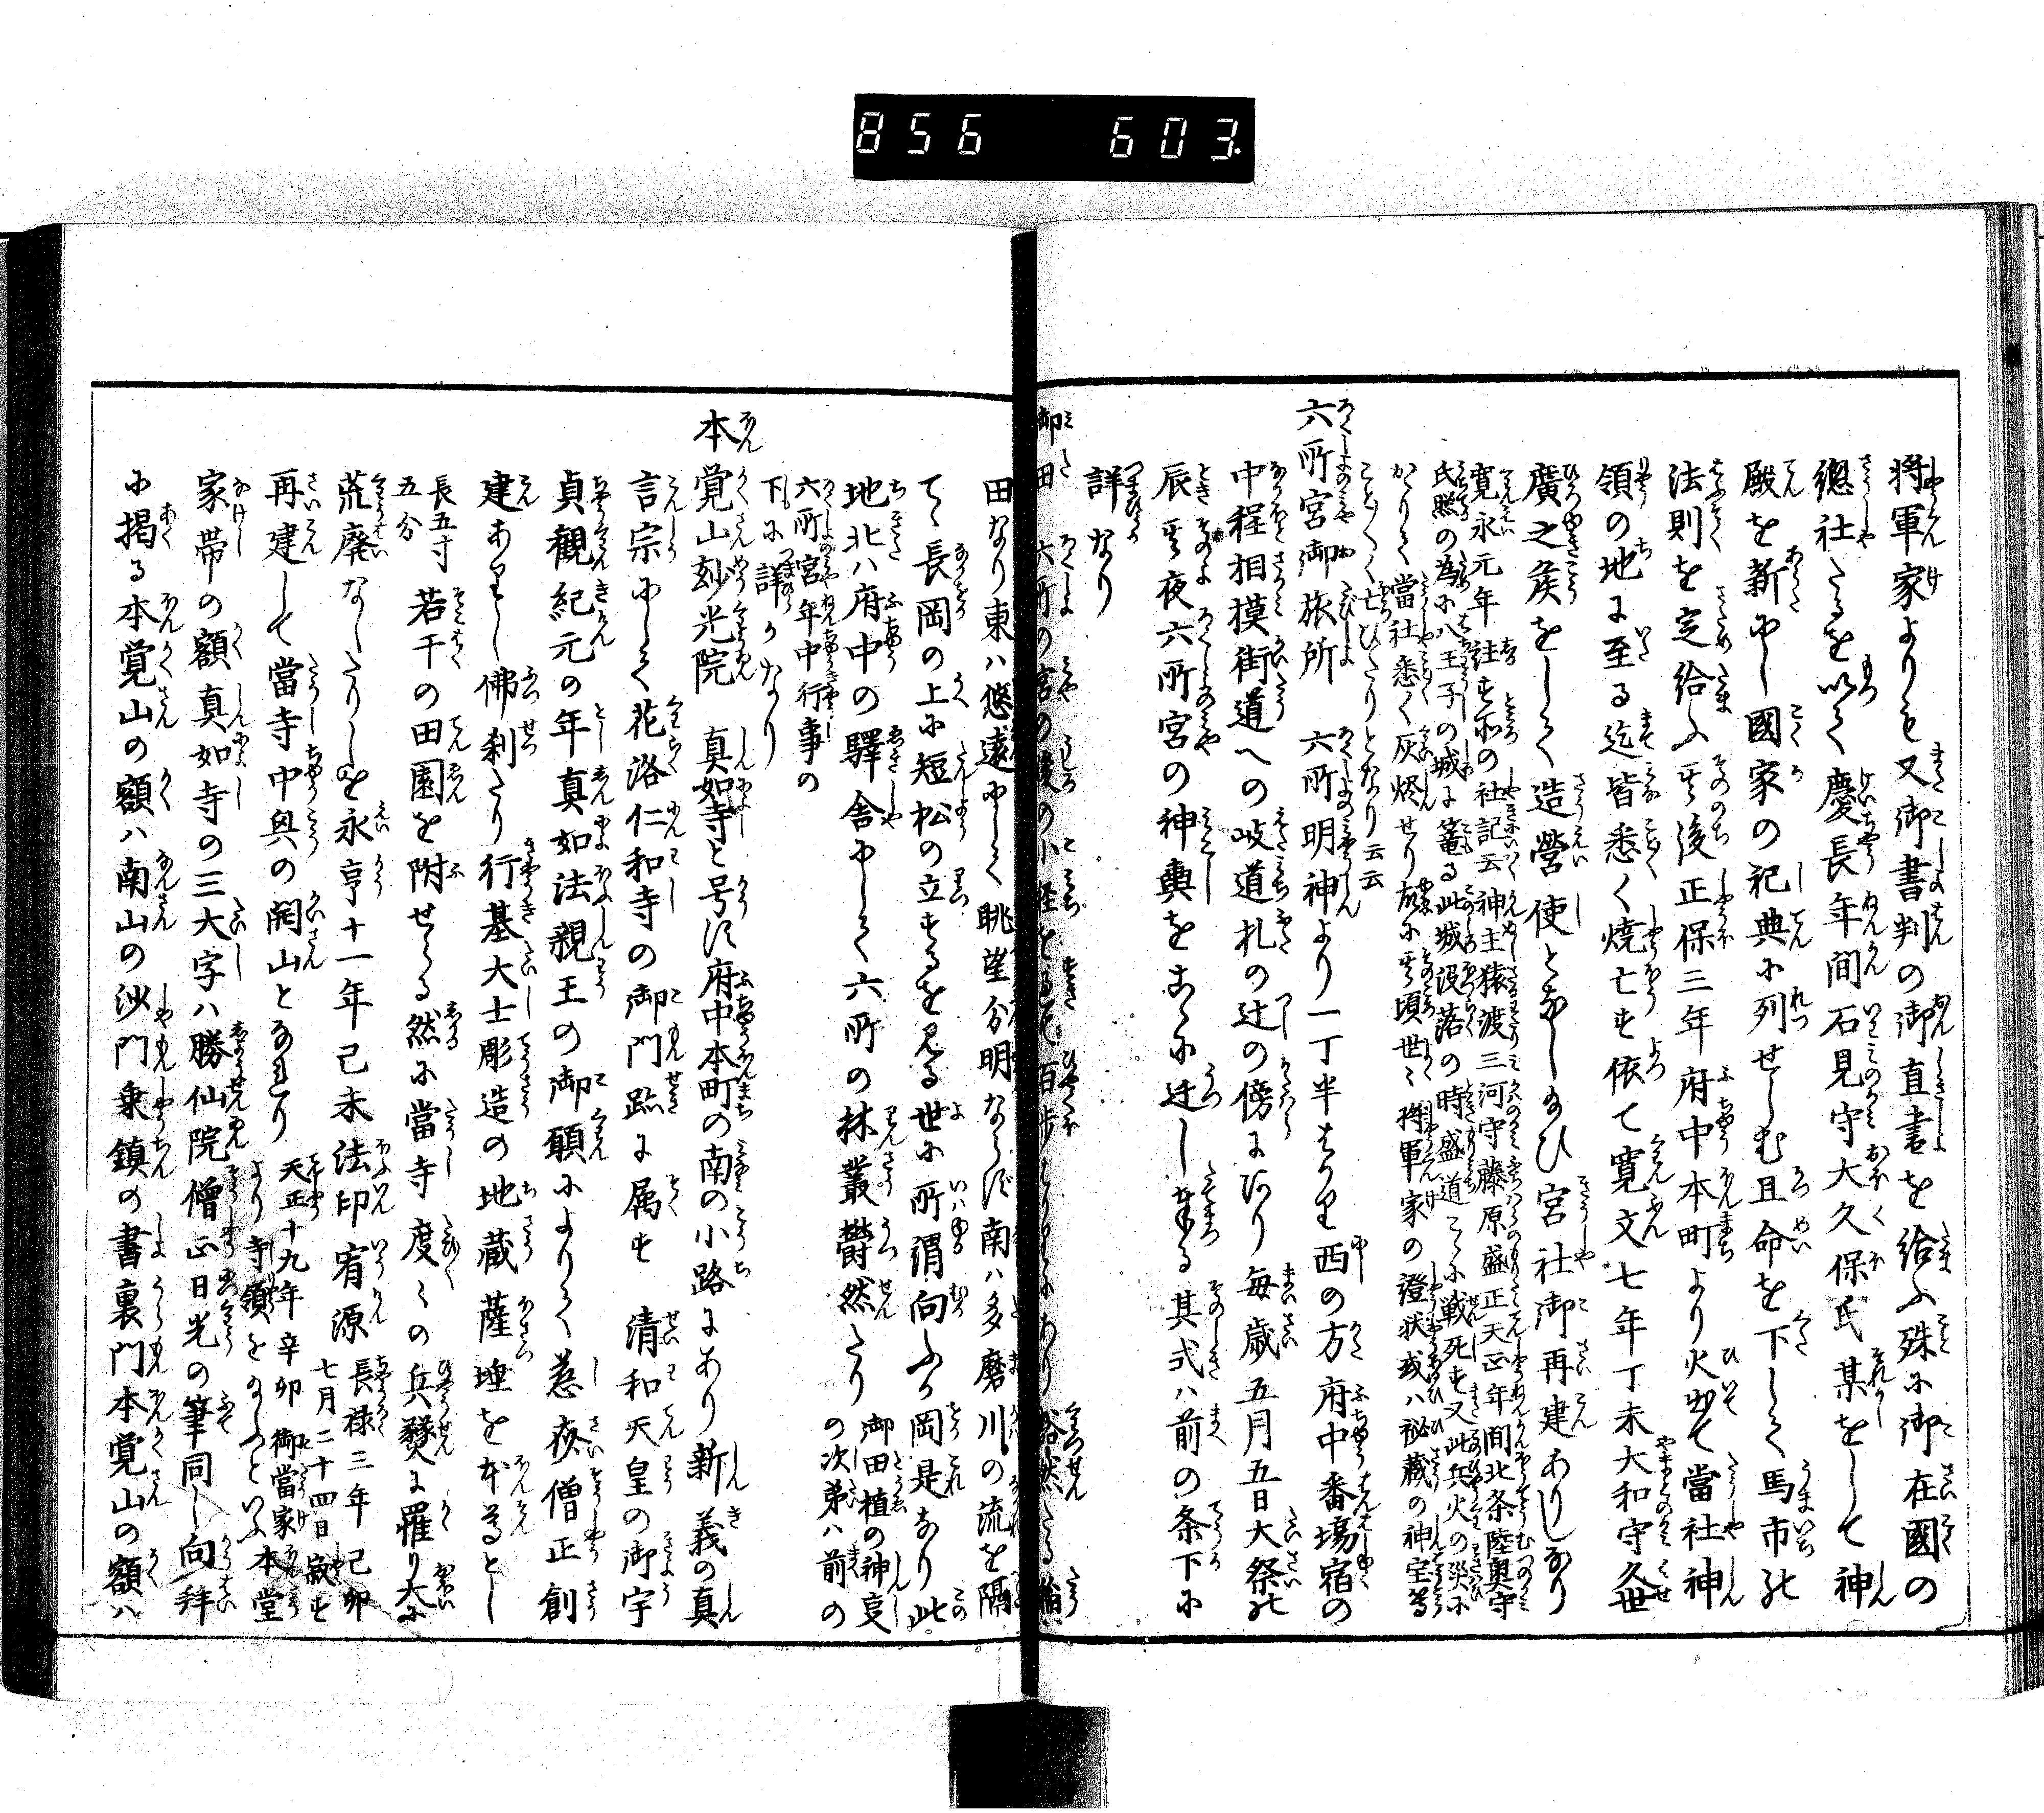 856 603
将軍家よりも又御書判の御直書を給ふ殊に御在國の
總社たるを以て慶長年間石見守大久保氏某をして神
殿を新にし國家の祀典に列せしむ且命を下して馬市の
法則を定給ふ其後正保三年府中本町より火出て當社神
領の地に至る迄皆悉く焼亡す依て寛文七年丁未大和守久世
廣之矦をして造營使となし給ひ宮社御再建ありしなり
寛永元年註す所の社記云神主猿渡三河守藤原盛正天正年間北条陸奥守
氏照の為に八王子の城に篭る此城没落の時盛道こゝに戦死す又此兵火の災に
かゝりて當社悉く灰燼せり故に其頃世々将軍家の證状或ハ秘蔵の神宝等
こと〳〵く亡ひたりとなり云云
六所宮御旅所 六所明神より一丁半はかり西の方府中番場宿の
中程相摸街道への岐道札の辻の傍にあり毎歳五月五日大祭の
辰其夜六所宮の神輿をこゝに迁し奉る其式ハ前の条下に
詳なり
御田 六所の宮の後の小徑を過て百歩はかりにあり豁然たる稲
田なり東ハ悠遠にして眺望分明ならす南ハ多磨川の流を隔
てゝ長岡の上に短松の立るを見る世に所謂向ふか岡是なり此
地北ハ府中の驛舎にして六所の林叢欝然たり 御田植の神㕝の次第ハ前の
六所宮年中行事の
下に詳かなり
本覚山妙光院 真如寺と号す府中本町の南の小路にあり新義の真
言宗にして花洛仁和寺の御門跡に属す 清和天皇の御宇
貞觀紀元の年真如法親王の御願によりて慈済僧正創
建ありし佛刹たり行基大士彫造の地蔵薩埵を本尊とし
長五寸
五分 若干の田園を附せらる然に當寺度〻の兵燹に罹り大に
荒廃なしたりしを永享十一年己未法印宥源 長禄三年己卯
七月二十四日寂す
再建して當寺中興の開山となれり 天正十九年辛卯 御當家
より寺領をよすといふ 本堂
家帯の額真如寺の三大字ハ勝仙院僧正日光の筆同し向拜
に掲る本覚山の額ハ南山の沙門乗鎮の書裏門本覚山の額ハ